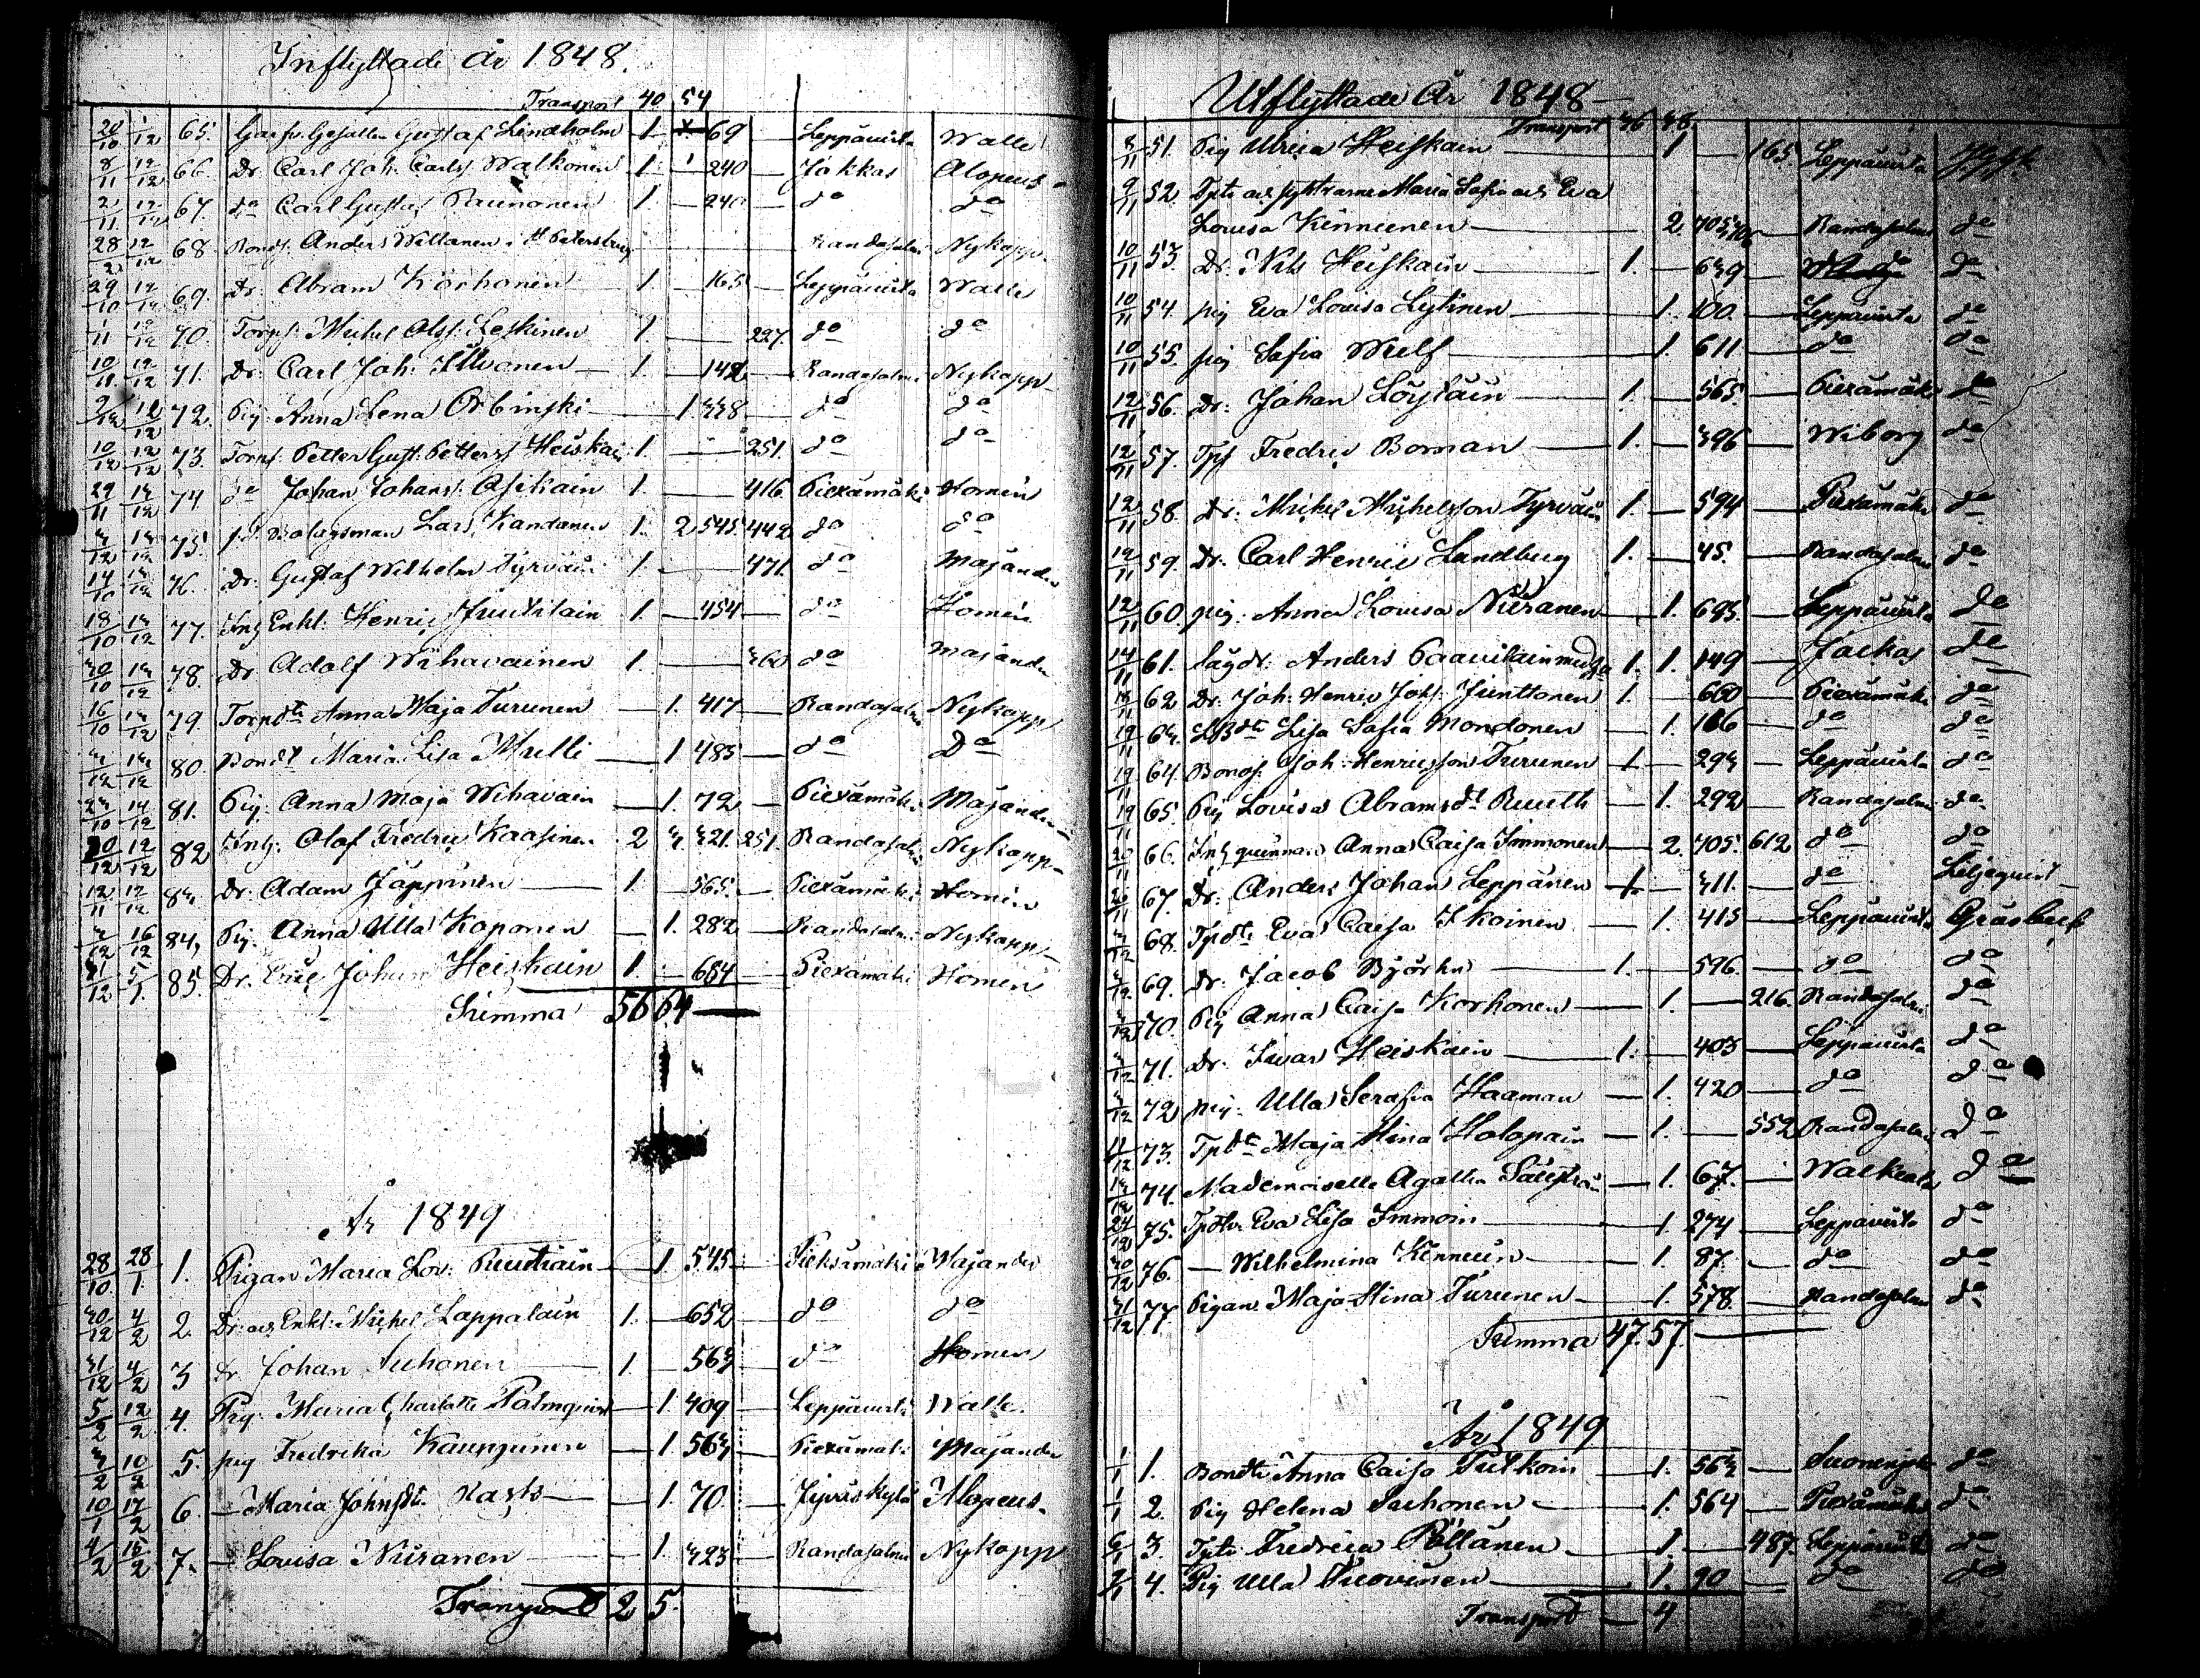 Inflyttade År 1848.
Transport 40 54
20/10 1/12 65. Gesällen Gustaf Lindholm 1. 69 Leppävirta Walle
8/11 12/12 66. Dr. Carl Joh. Carls. Walkonen 1. 240 Jokkas Alopeus
2/11 12/12 67. do Carl Gustaf Paunonen 1. 240 do do
28/2 12/12 68. Bonds. Anders Wettanen i St Petersburg Randasalmi Nykopp
29/10 12/12 69. Dr. Abram Korhonen 1. 165 Leppävirta Walle
1/11 12/12 70. Torps. Michel Ols. Leskinen 1. 227. do do
10/11 12/12 71. Dr. Carl Joh. Ilvonen 1. 142 Randasalmi Nykopp
12/12 72. Pig. Anna Lena Orbinski 1. 338. do do
10/12 12/12 73. Torps. Petter Gust. Petterss. Heiskain 1. 251. do do
29/11 13/12 74. do Johan Johans. Asikain 1. 416 Piexämäki Homén
3/12 13/12 75. Bolagsman Lars Kandanen 1. 2 545 442 do do
14/10 13/12 76. Dr. Gustaf Wilhelm Tyrväin 1. 471. do Majander
18/10 13/12 77. Inh. Enkl. Henric Juutilain 1. 454 do Homén
30/10 13/12 78. Dr Adolf Wihavainen 1. 360 do Majander
16/10 13/12 79. Torpdtr Anna Maja Turunen 1. 417 Randasalmi Nykopp
3/12 13/12 80. Bondt Maria Lisa Mulli 1 483 do Do
23/10 14/12 81. Pig. Anna Maja Wihavain 1. 72 Piexämäki Majander
10/12 12/12 82 Inh. Olof Fredric Kaasinen 2 3 321. 251. Randasalmi Nykopp
12/11 12/12 83. Dr. Adam Jäppinen 1. 565. Piexämäki Homén
3/12 16/12 84. Pig. Anna Ulla Koponen 1. 282 Randasalmi Nykopp
31/12 5/1. 85. Dr. Eric Johan Heiskain 1. 684 Piexämäki Homén
Summa 56 64
År 1849
28/10. 28/1. 1. Pigan Maria Lov. Ruutiain 1. 545 Pieksämäki Majander
30/12 4/2 2. Dr. och Enkl. Michel Lappalain 1. 652 do do
31/12 4/2 3 Dr. Johan Suhonen 1. 563 do Homén
5/2 12/2 4. Pig. Maria Charlotta Palmqvist 1. 409 Leppävirta Walle.
3/2 10/2 5. pig Fredrika Kaurunen 1. 563 Piexämäki Majander
10/1 17/2 6 — Maria Johnsdtr 1. 70. Jyväskylä Alopeus.
4/2 15/2 7. — Lovisa Niiranen 1. 323 Randasalmi Nykopp
Transport 2 5.
Utflyttade År 1848
Transport 36 38.
8/11 51. Pig Ulrica Heiskain 1 165. Leppävirta
9/11 52. Tpdtr och systrarne Maria Sofia och Eva
Lovisa Kinnunen 2 705 Randasalmi do
10/11 53. Dr. Nils Heiskain 1. 639 do do
10/11 54. pig Eva Lovisa Lytinen 1. 100. Leppävirta do
10/11 55. pig Sofia Wulf 1. 611 do do
12/11 56. Dr. Johan Löytäin 1. 565. Piexämäki do
12/11 57. Tps Fredric Boman 1. 396 Wiborg do
12/11 58. Dr. Michel Michelsson Tyrväin 1. 594 Piexämäki do
12/11 59. Dr. Carl Henric Lundberg 1. 45. Randasalmi do
12/11 60. pig. Anna Lovisa Niiranen 1. 695. Leppävirta do
14/11 61. Anders Paavilain 1. 1. 149 Jockas do
18/11 62 Dr. Joh. Henric Johs. Junttonen 1. 660 Piexämäki do
19/11 63. Lisa Sofia Mondonen 1. 166 do do
19/11 64. Bonds. Joh. Henricsson Turunen 1 293 Leppävirta do
19/11 65. Pig Lovisa Abramsdt Ruuth 1. 292 Randasalmi do
66. Inh. qvinnan Anna Caisa Immonen 2. 705. 612 do do
67. Dr. Anders Johan Leppänen 1 311. do Liljeqvist
3/12 68. Tpdtr Eva Caisa Ikoinen 1. 415 Leppävirta Gråsbeck
3/12 69. Dr. Jacob Björkn 1. 596. do do
3/12 70. Pig Anna Caisa Korhonen 1. 216. Randasalmi do
3/12 71. Dr. Ivar Heiskain 1. 403 Leppävirta do
3/12 72 pig. Ulla Serafia Haaman 1. 420 do do
11/12 73. Tpdtr Maja Stina Holopain 1. 552 Randasalmi do
13/12 74. Mademoiselle Agatha 1. 67. Walkeala do
27/12 75. Tpdtr. Eva Lisa Immoin 1 274 Leppävirta do
30/12 76. — Wilhelmina Kinnuin 1. 87. do do
31/12 77. Pigan Maja Stina Turunen 1. 578. Randasalmi do
Summa 47. 57.
År 1849
1/1 1. Bondtr Anna Caisa Pulkoin 1. 563 Suonenjoki do
1/1 2. Pig Helena Suhonen 1. 564 Piexämäki do
6/1 3. Tpdtr Fredrica Pöllänen 1 487. Leppävirta do
7/1 4. Pig Ulla Suovinen 1. 90 do do
Transport 4